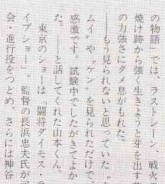 の物語」では、ラストシーン、戦火
焼け跡から強く生きようと芽を出す
の力強さにタメ息がもれた。
――もう見られないと思っていた
ムイ』や『ゲン』を見られただけで
感激です。試験中でしたがきてよか
た。――と話してくれた山本くん。
東京のショーは、『闘将ダイモス・ラ
イブショー』。監督の長浜忠夫氏が司
会・進行役をつとめ、さらには神谷